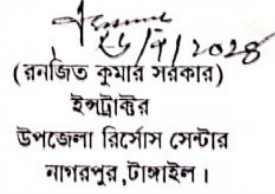 ২৬/৭/২০২৪
(রনজিত কুমার সরকার)
ইন্সট্রাক্টর
উপজেলা রির্সোস সেন্টার
নাগরপুর,টাঙ্গাইল।